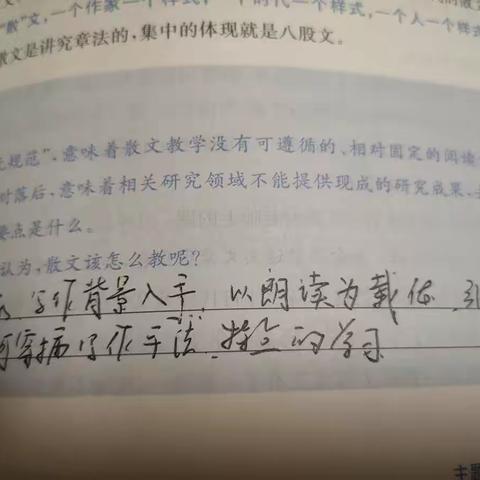 "散"文,一个作家一个样式,一个时代一个样式,一个人一个样式
散文是讲究章法的,集中的体现就是八股文。
无规范",意味着散文教学没有可遵循的、相对固定的阅读
对落后,意味着相关研究领域不能提供现成的研究成果、
要点是什么。
认为,散文该怎么教呢?
写作背景入手,以朗读为载体,
写作手法、特色的学习
主题